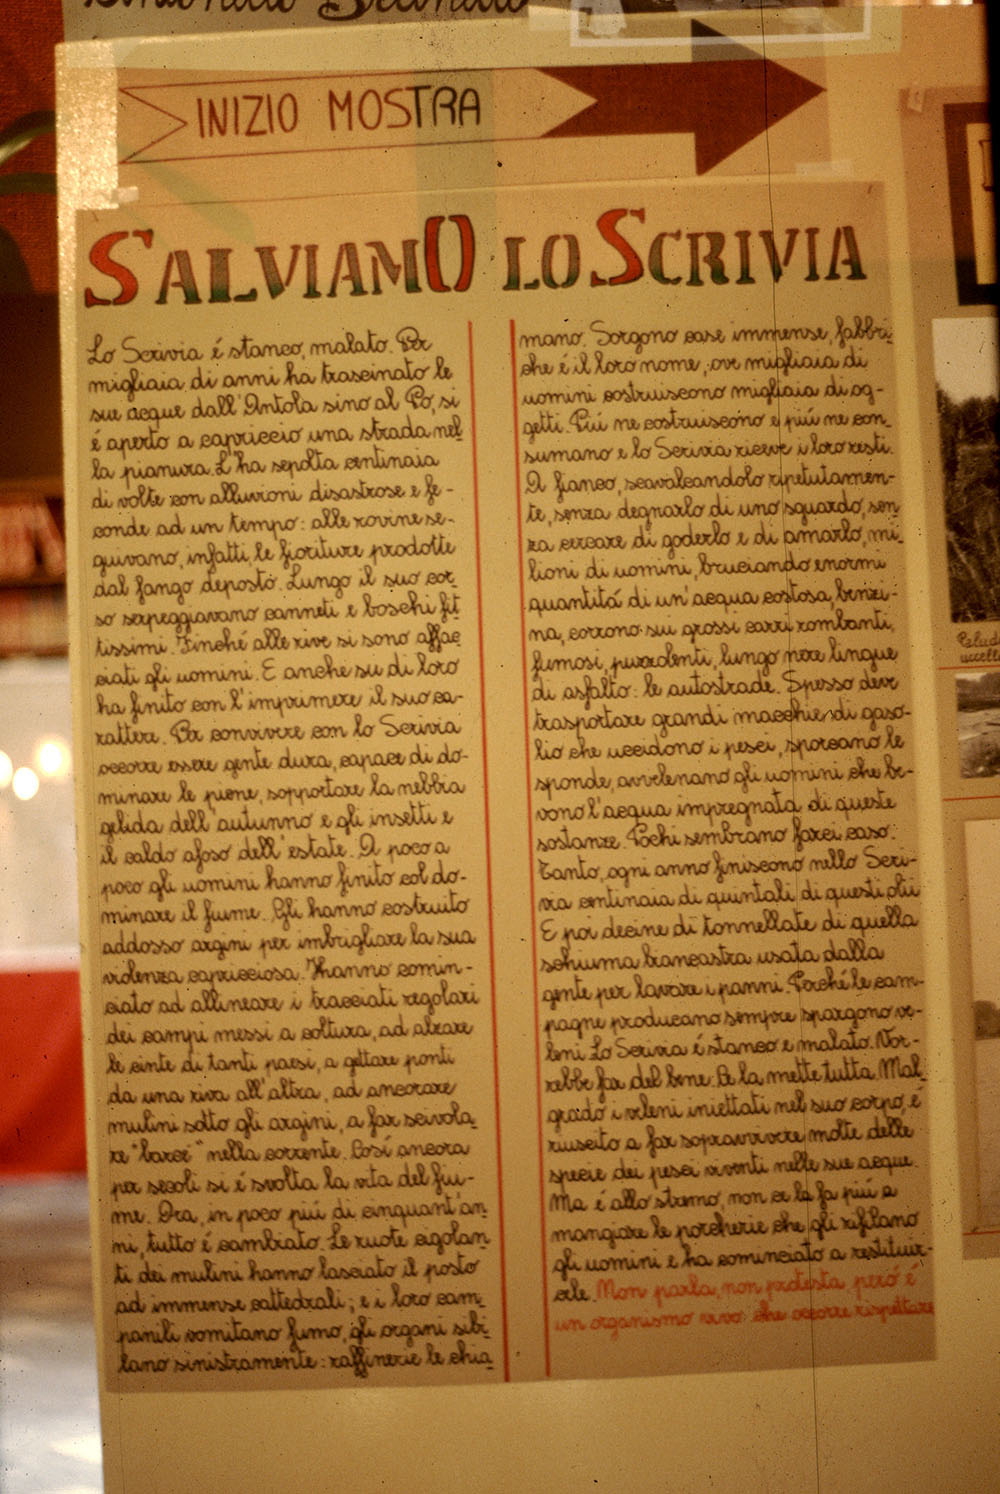 INIZIO MOSTRA
SALVIAMO LO SCRIVIA
Lo Scrivia é stanco, malato. Per
migliaia di anni ha trascinato le
sue acque dall'Antola sino al Po, si
é aperto a capriccio una strada nel
la pianura. L'ha sepolta centinaia
di volte con alluvioni disastrose e fe-
conde ad un tempo: alle rovine se-
guivano, infatti, le fioriture prodotte
dal fango deposto. Lungo il suo cor-
so serpeggiavano canneti e boschi fit
tissimi. Finché alle rive si sono affac
ciati gli uomini. E anche su di loro
ha finito con l'imprimere il suo ca-
rattere. Per convivere con lo Scrivia
occorre essere gente dura, capace di do-
minare le piene, sopportare la nebbia
gelida dell'autunno e gli insetti e
il caldo afoso dell'estate. A poco a
poco gli uomini hanno finito col do-
minare il fiume. Gli hanno costruito
addosso argini per imbrigliare la sua
violenza capricciosa. Hanno comin-
ciato ad allineare i tracciati regolari
dei campi messi a coltura, ad alzare
le cinte di tanti paesi, a gettare ponti
da una riva all'altra, ad ancorare
mulini sotto gli argini, a far scivola-
re "barcé" nella corrente. Cosí ancora
per secoli si é svolta la vita del fiu-
me. Ora, in poco piú di cinquant'an
ni, tutto é cambiato. Le ruote cigolan
ti dei mulini hanno lasciato il posto
ad immense cattedrali; e i loro cam-
panili vomitano fumo, gli organi sibi
lano sinistramente: raffinerie le chia
mano. Sorgono case immense, fabbri-
che é il loro nome, ove migliaia di
uomini costruiscono migliaia di og-
getti. Piú ne costruiscono e piú ne con-
sumano e lo Scrivia riceve i loro resti.
A fianco, scavalcandolo ripetutamen-
te, senza degnarlo di uno sguardo, sen
za cercare di goderlo e di amarlo, mi-
lioni di uomini, bruciando enormi
quantitá di un'acqua costosa, benzi-
na, corrono sui grossi carri rombanti,
fumosi, puzzolenti, lungo nere lingue
di asfalto: le autostrade. Spesso deve
trasportare grandi macchie di gaso-
lio che uccidono i pesci, sporcano le
sponde, avvelenano gli uomini che be-
vono l'acqua impregnata di queste
sostanze. Pochi sembrano farci caso.
Tanto, ogni anno finiscono nello Scri-
via centinaia di quintali di questi olii
E poi decine di tonnellate di quella
schiuma biancastra usata dalla
gente per lavare i panni. Perché le cam-
pagne producano sempre spargono ve-
leni Lo Scrivia é stanco e malato. Vor-
rebbe far del bene. Ce la mette tutta. Mal-
grado i veleni iniettati nel suo corpo, é
riuscito a far sopravvivere molte delle
specie dei pesci viventi nelle sue acque.
Ma é allo stremo, non ce la fa piú a
mangiare le porcherie che gli rifilano
gli uomini e ha cominciato a restituir-
cele. Non parla, non protesta, peró é
un organismo vivo che occorre rispettare